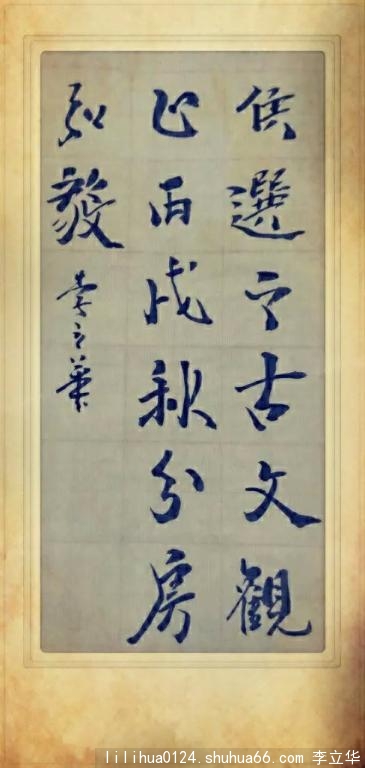 侯選之古文觀
止丙戌秋分房
弘毅 李立華
lilihua0124.shuhua66.com 李立华